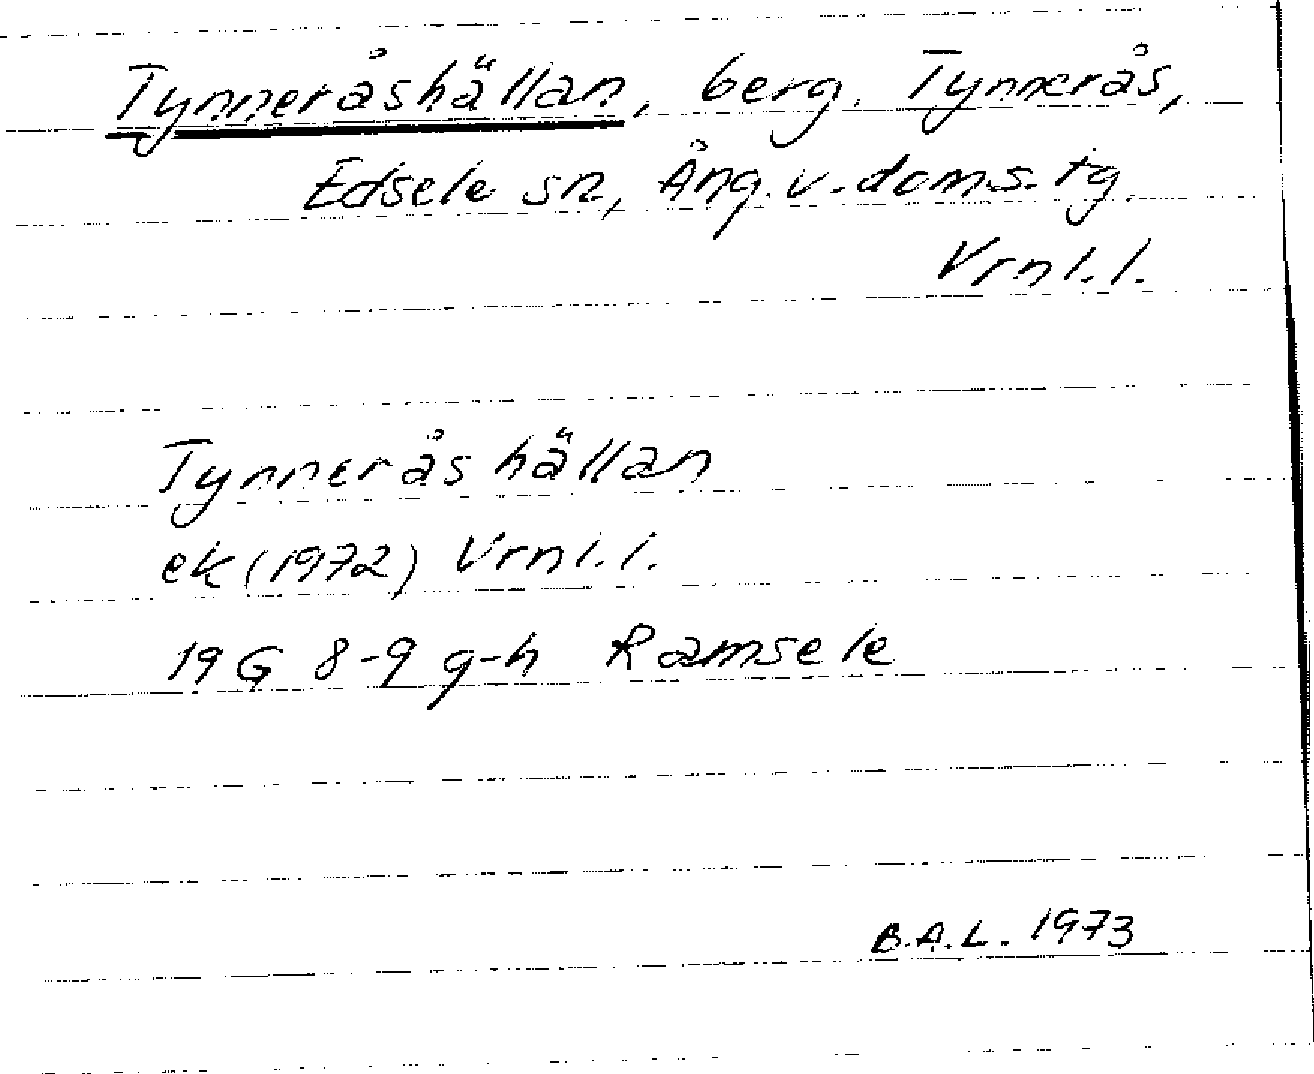 Tynneråshällan, berg. Tynnerås,
Edsele sn, Ång. v. doms. tg.
Vrnl.l.
Tynneråshällan
ek (1972) Vrnl.l.
19G 8-9 g-h Ramsele
B.A.L. 1973